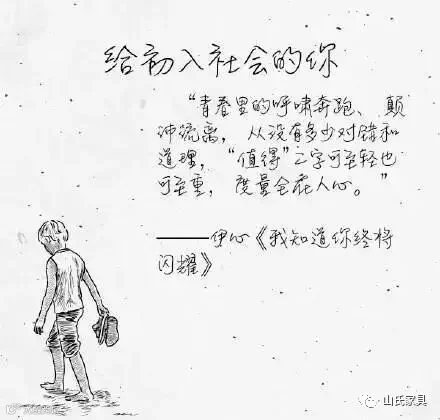 给初入社会的你
“青春里的呼啸奔跑、颠
沛流离，从没有多少对错和
道理，“值得”二字可至轻也
可至重，度量全在人心。”
——伊心《我知道你终将
闪耀》
山氏家具